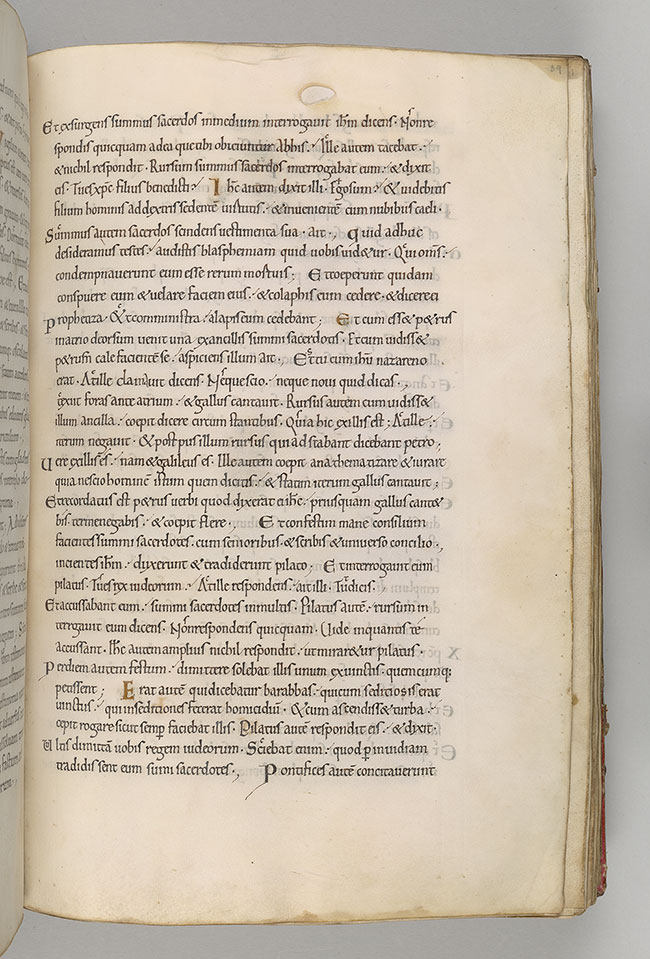 Et exsurgens summus sacerdos inmedium interrogavit ihm dicens. Nonre
spondis quicquam adea quetibi obiciuntur abhis. Ille autem tacebat.
&nichil respondit. Rursum summus sacerdos interrogabat eum. &dyxit
ei. Tuesxpe filius benedicti. Ihc autem dyxit illi. Egosum. &videbitis
filium hominis addextris sedente virtutis. &uveniente cum nubibus caeli.
Summus autem sacerdos scindens vestimenta sua. ait. quid adhuc
desideramus testes. audistis blasphemiam quid vobis vid&ur. Qui oms.
condempnaverunt eum esse reum mortis; Et coeperunt quidam
conspuere eum &velare faciem eius. &colaphis eum cedere. &dicere ei
Prophetiza. &ministri alapis eum cedebant; Et cum ess& p&rus
inatrio deorsum venit una exancillis summi sacerdotis. Etcum vidiss&
p&rum calefacientese. aspiciens illum ait. Et tu cumihu nazareno
erat. Atille dicens. Neque scio. neque novi quid dicas.
exiit foras ante atrium. &gallus cantavit. Rursus autem cum vidiss&
illum ancilla. coepit dicere circum stantibus. Quia hic exillis est; Atille
iterum negavit. &post pusillum rursus qui adstabant dicebant petro;
Vere exillis es. nam &galileus es. Ille autem coepit anathematizare &iurare
quia nescio hominem istum quem dicitis. &statim iterum gallus cantavit;
Etrecordatus est p&rus verbi quod dyxerat ei ihc. priusquam gallus cant&
bis. termenegabis. &coepit flere. Et confestim mane consilium
facientes summi sacerdotes. cum senioribus. &scribis &universo concilio.
vincientes ihm. duxerunt &tradiderunt pilato; Et interrogavit eum
pilatus. Tues rex iudeorum. Atille respondens. ait illi. Tu dicis.
Etaccusabant eum. summi sacerdotes inmultis. Pilatus aute. rursum in
terrogavit eum dicens. Nonrespondens quicquam. Vide inquantis te
accusant. Ihc autem amplius nichil respondit. utmirar&ur pilatus.
Perdiem autem festum. dimittere solebat illis unum exvinctis. quemcumq;
petissent; Erat aute quidicebatur barabbas. quicum sediciosis erat
vinctus. qui inseditione fecerat homicidiu. &cum ascendiss& turba.
cepit rogare sicut semp faciebat illis. Pilatus aute respondit eis. &dyxit.
Vultis dimitta vobis regem iudeorum. Sciebat enim. quod p invidiam
tradidissent eum sumi sacerdotes. Pontifices aute concitaverunt